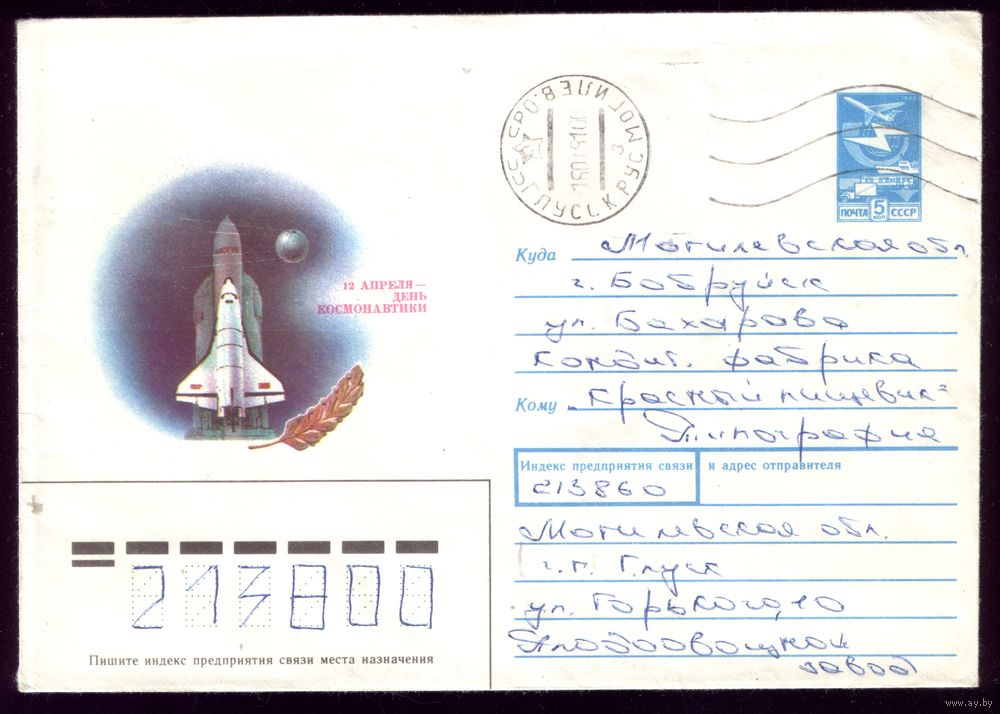 МОГИЛЕВ. О
ГЛУССК РУС
ПОЧТА 5 КОП СССР
12 АПРЕЛЯ —
ДЕНЬ
КОСМОНАВТИКИ
Куда Могилевская обл.
г. Бобруйск
ул. Бахарова
кондит. фабрика
Кому „Красный пищевик"
Типография
Индекс предприятия связи и адрес отправителя
213860
Могилевская обл.
г.п. Глуск
ул. Горького, 10
Плодоовощной
завод
213800
Пишите индекс предприятия связи места назначения
www.ay.by